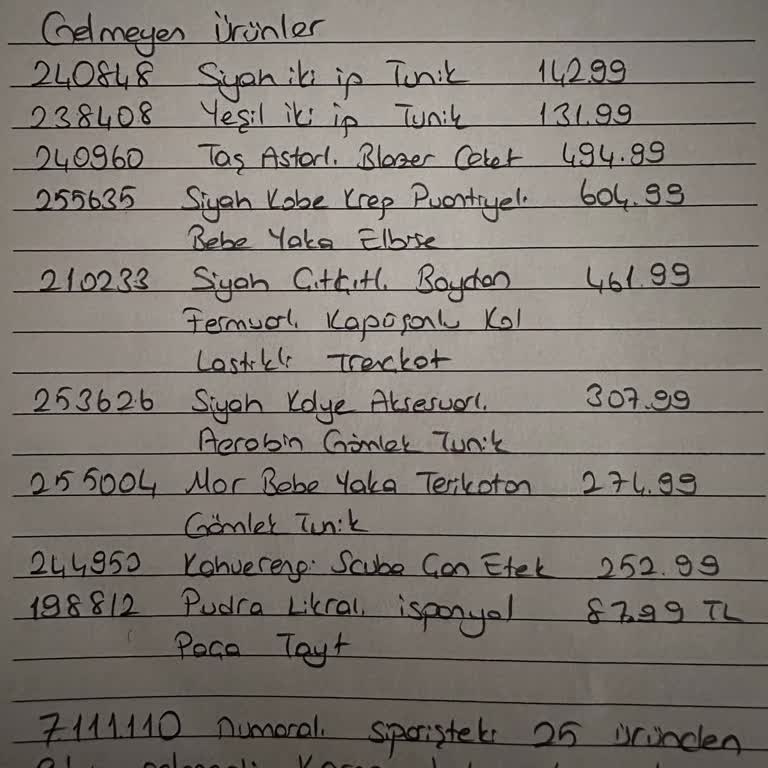 Gelmeyen Ürünler
240848 Siyah iki ip Tunik 142.99
238408 Yeşil iki ip Tunik 131.99
240960 Taş Astarlı Blazer Ceket 494.99
255635 Siyah Kobe Krep Puantiyeli 604.99
Bebe Yaka Elbise
210233 Siyah Çıtçıtlı Boydan 461.99
Fermuarlı Kapüşonlu Kol
Lastikli Trençkot
253626 Siyah Kolye Aksesuarlı 307.99
Aerobin Gömlek Tunik
255004 Mor Bebe Yaka Terikoton 274.99
Gömlek Tunik
244950 Kahverengi Scuba Çan Etek 252.99
198812 Pudra Likralı ispanyol 87.99 TL
Paça Tayt
7111110 numaralı siparişteki 25 üründen